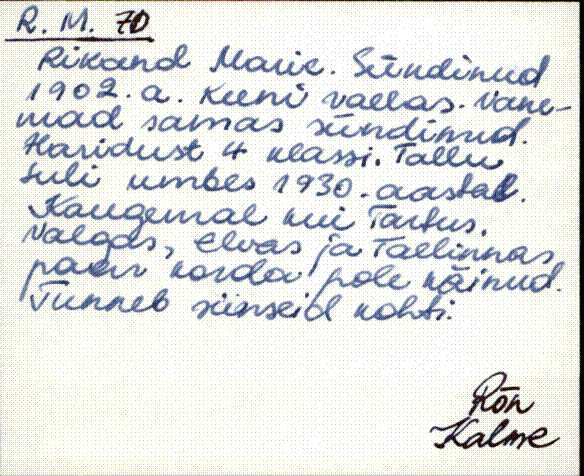 R. M. 70
Rikand Marie. Sündinud
1902. a. Keeni vallas. Vane-
mad samas sündinud.
Haridust 4 klassi. Tallu
tuli umbes 1930. aastal.
Kaugemal kui Tartus,
Valgas, Elvas ja Tallinnas
paar korda pole käinud.
Tunneb siinseid kohti.
Rõn
Kalme